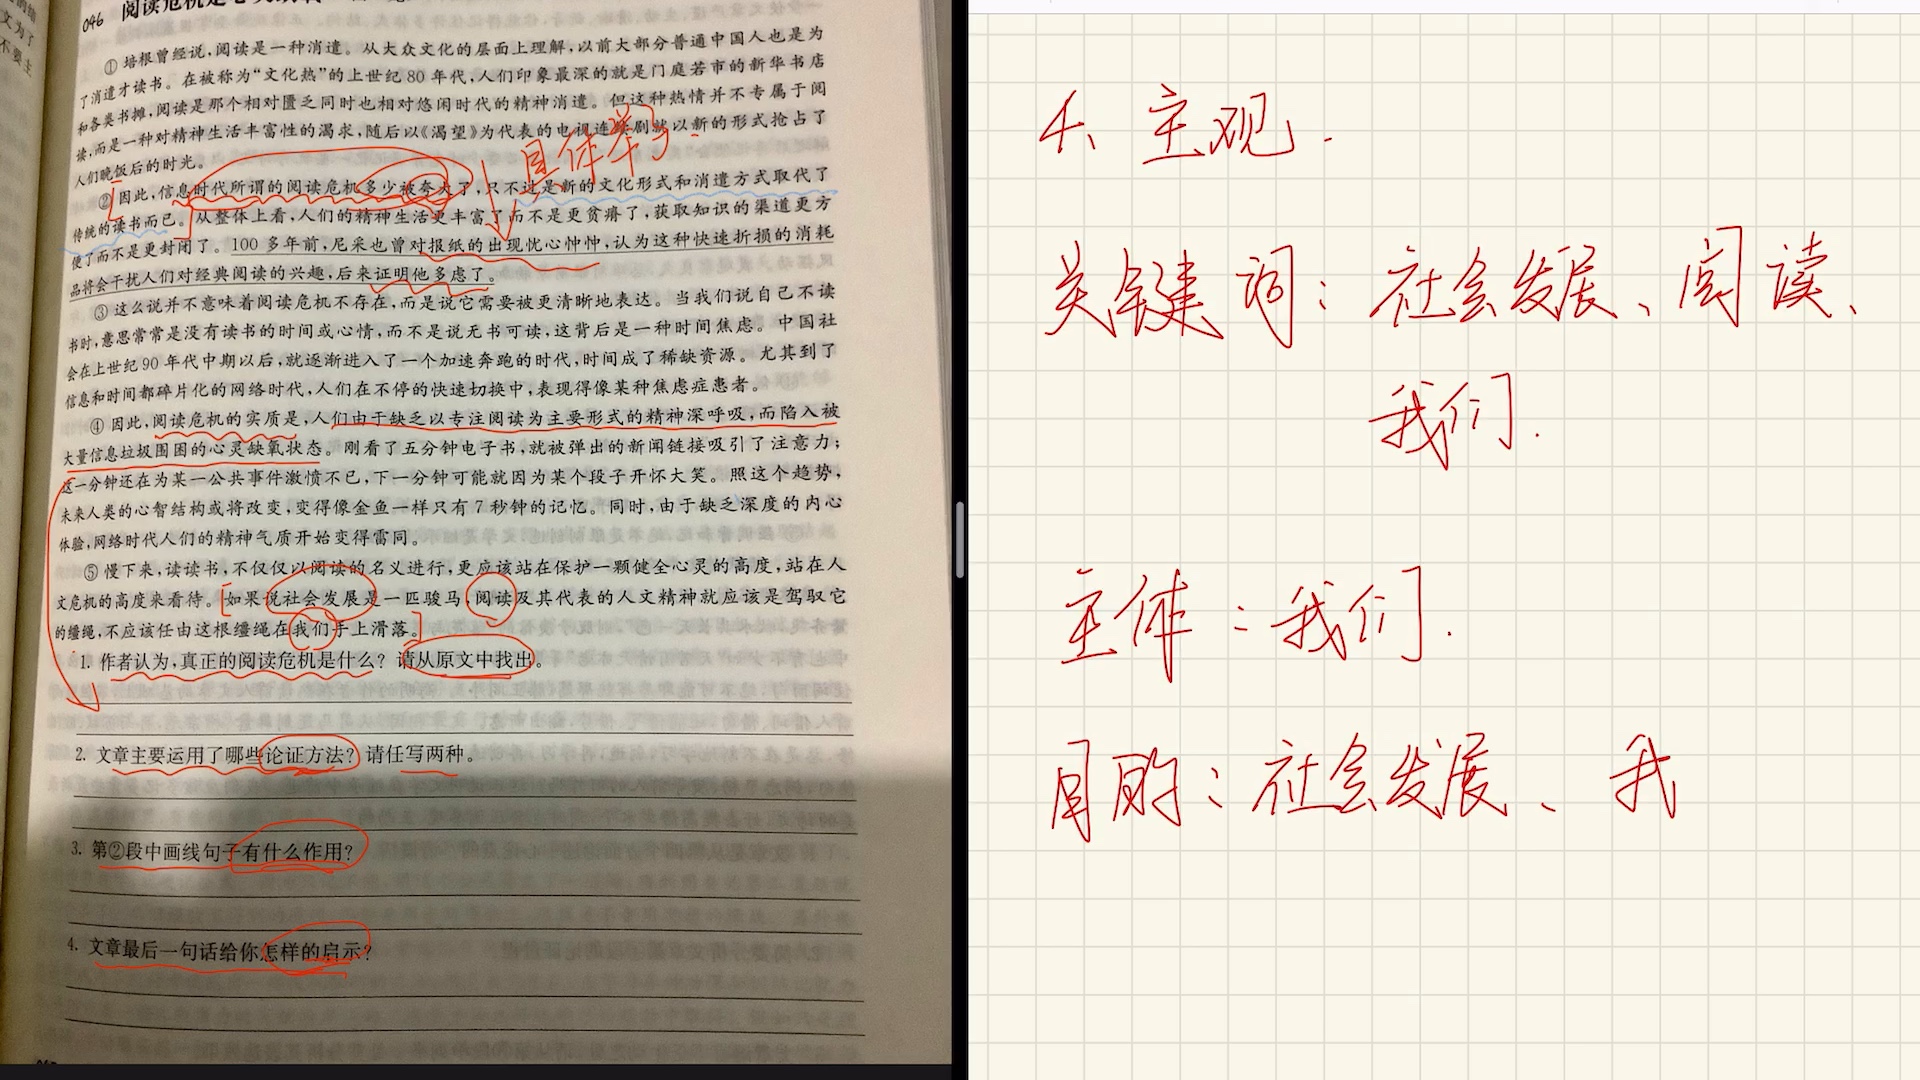 046
阅读危机是
① 培根曾经说,阅读是一种消遣。从大众文化的层面上理解,以前大部分普通中国人也是为
了消遣才读书。在被称为“文化热”的上世纪80年代,人们印象最深的就是门庭若市的新华书店
和各类书摊,阅读是那个相对匮乏同时也相对悠闲时代的精神消遣。但这种热情并不专属于阅
读,而是一种对精神生活丰富性的渴求,随后以《渴望》为代表的电视连续剧就以新的形式抢占了
人们晚饭后的时光。
具体举子
② 因此,信息时代所谓的阅读危机多少被夸大了,只不过是新的文化形式和消遣方式取代了
传统的读书而已。从整体上看,人们的精神生活更丰富了而不是更贫瘠了,获取知识的渠道更方
便了而不是更封闭了。100多年前,尼采也曾对报纸的出现忧心忡忡,认为这种快速折损的消耗
品将会干扰人们对经典阅读的兴趣,后来证明他多虑了。
③ 这么说并不意味着阅读危机不存在,而是说它需要被更清晰地表达。当我们说自己不读
书时,意思常常是没有读书的时间或心情,而不是说无书可读,这背后是一种时间焦虑。中国社
会在上世纪90年代中期以后,就逐渐进入了一个加速奔跑的时代,时间成了稀缺资源。尤其到了
信息和时间都碎片化的网络时代,人们在不停的快速切换中,表现得像某种焦虑症患者。
④ 因此,阅读危机的实质是,人们由于缺乏以专注阅读为主要形式的精神深呼吸,而陷入被
大量信息垃圾围困的心灵缺氧状态。刚看了五分钟电子书,就被弹出的新闻链接吸引了注意力;
这一分钟还在为某一公共事件激愤不已,下一分钟可能就因为某个段子开怀大笑。照这个趋势,
未来人类的心智结构或将改变,变得像金鱼一样只有7秒钟的记忆。同时,由于缺乏深度的内心
体验,网络时代人们的精神气质开始变得雷同。
⑤ 慢下来,读读书,不仅仅以阅读的名义进行,更应该站在保护一颗健全心灵的高度,站在人
文危机的高度来看待。如果说社会发展是一匹骏马,阅读及其代表的人文精神就应该是驾驭它
的缰绳,不应该任由这根缰绳在我们手上滑落。
1. 作者认为,真正的阅读危机是什么?请从原文中找出。
2. 文章主要运用了哪些论证方法?请任写两种。
3. 第②段中画线句子有什么作用?
4. 文章最后一句话给你怎样的启示?
4、主观.
关键词:社会发展、阅读、
我们.
主体:我们.
目的:社会发展、我